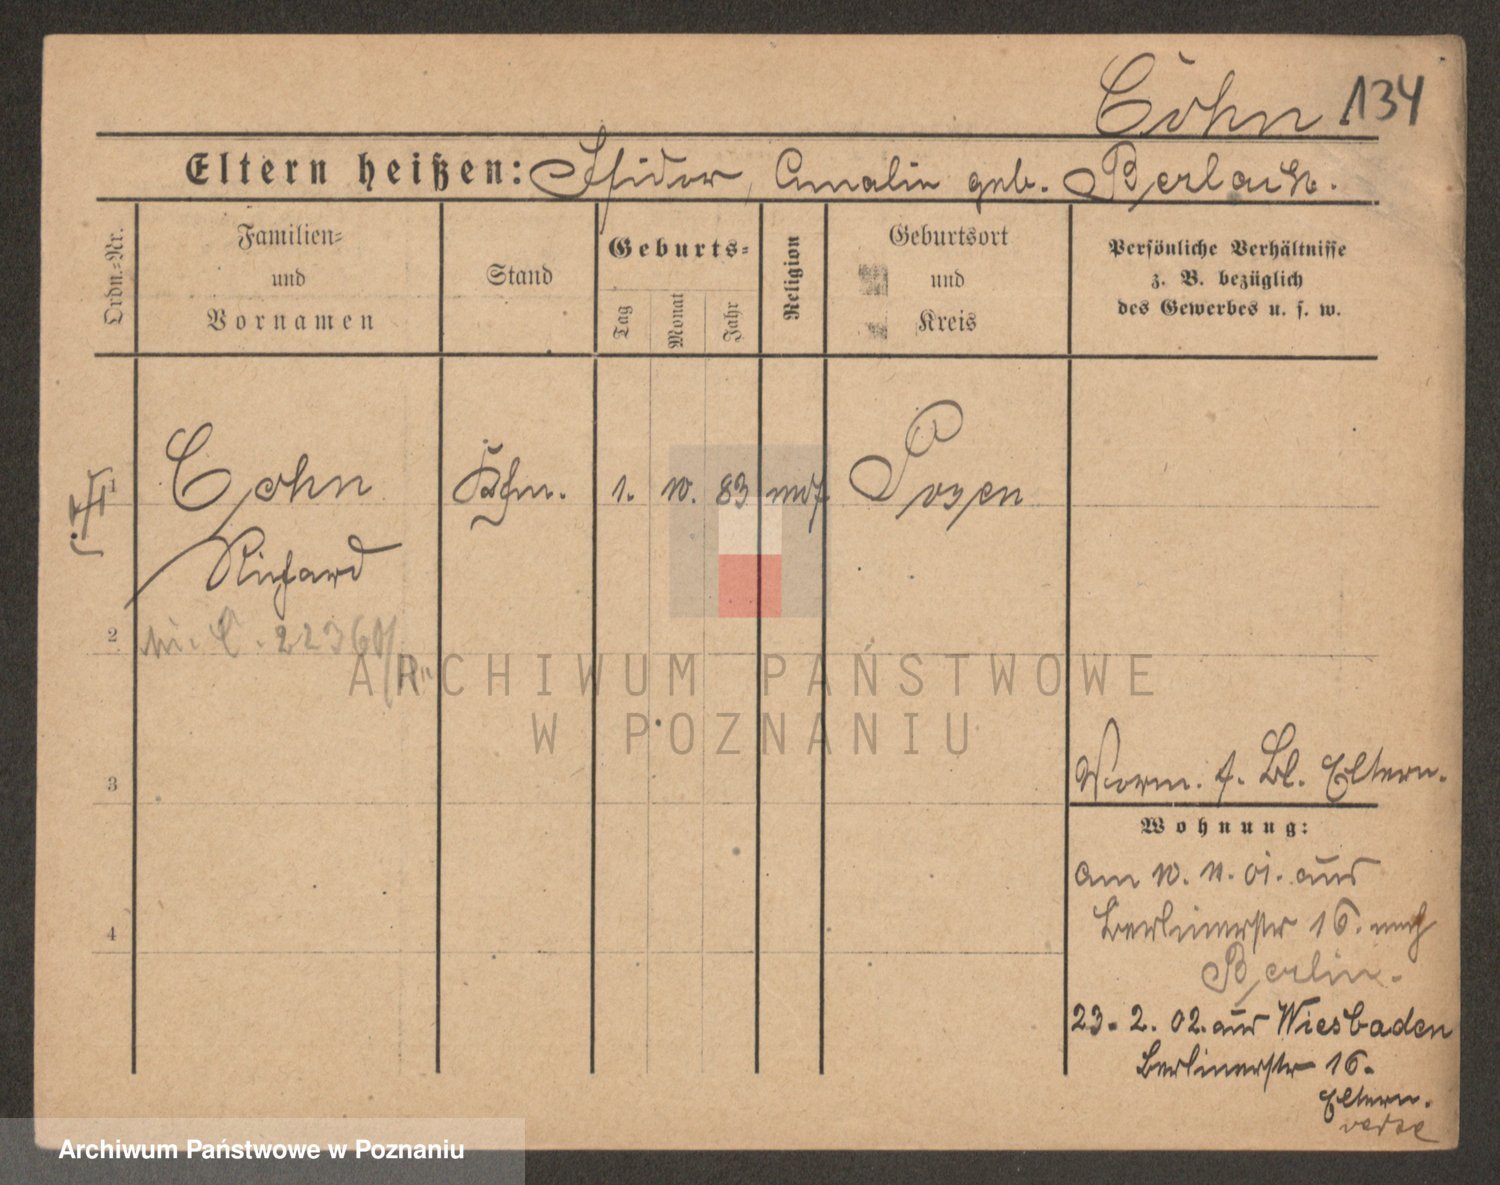 Cohn 134
Eltern heißen: Isidor, Amalie geb. Berlack.
Ordn.-Nr.
Familien-
und
Vornamen
Stand
Geburts-
Tag
Monat
Jahr
Religion
Geburtsort
und
Kreis
Persönliche Verhältnisse
z. B. bezüglich
des Gewerbes u. s. w.
1
Cohn Kfm. 1. 10. 83 mos. Posen
Richard
2
C. 22360/
ARCHIWUM PAŃSTWOWE
W POZNANIU
3
Norm. f. Bl. Eltern.
Wohnung:
am 10. 11. 01. aus
Berlinerstr 16. nach
4
Berlin.
23. 2. 02. aus Wiesbaden
Berlinerstr 16.
Eltern.
verte
Archiwum Państwowe w Poznaniu